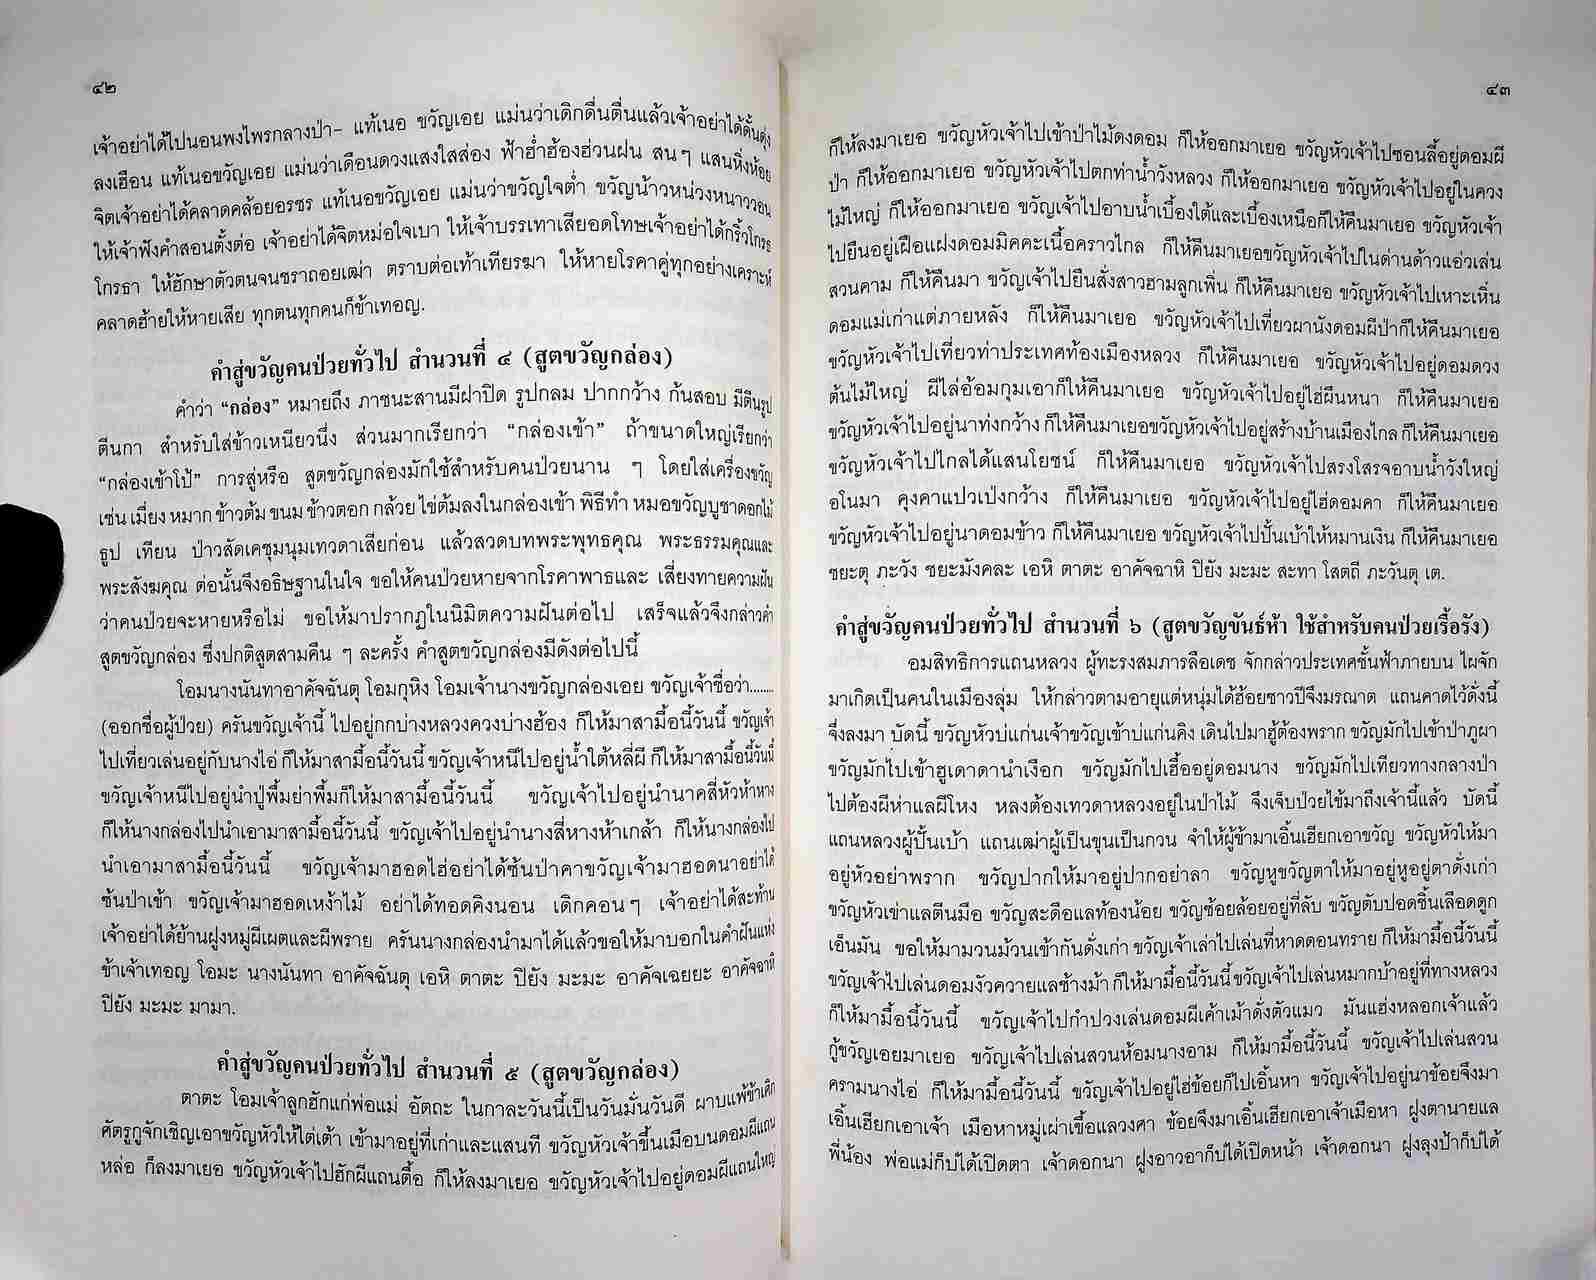 ๔๒
เจ้าอย่าได้ไปนอนพงไพรกลางป่า- แท้เนอ ขวัญเอย แม่นว่าเดิกดื่นตื่นแล้วเจ้าอย่าได้ดั้นดุ่ง
ลงเฮือน แท้เนอขวัญเอย แม่นว่าเดือนดวงแสงใสส่อง ฟ้าฮ่ำฮ้องฮ่วนฝน สนๆ แสนหิ่งห้อย
จิตเจ้าอย่าได้คลาดคล้อยอรชร แท้เนอขวัญเอย แม่นว่าขวัญใจต่ำ ขวัญน้าวหน่วงหนาววอน
ให้เจ้าฟังคำสอนตั้งต่อ เจ้าอย่าได้จิตหม่อใจเบา ให้เจ้าบรรเทาเสียอดโทษเจ้าอย่าได้กริ้วโกรธ
โกรธา ให้ฮักษาตัวตนจนชราถอยเฒ่า ตราบต่อเท้าเทียรฆา ให้หายโรคาคู่ทุกอย่างเคราะห์
คลาดฮ้ายให้หายเสีย ทุกตนทุกคนก็ข้าเทอญ.
คำสู่ขวัญคนป่วยทั่วไป สำนวนที่ ๔ (สูตขวัญกล่อง)
คำว่า “กล่อง” หมายถึง ภาชนะสานมีฝาปิด รูปกลม ปากกว้าง ก้นสอบ มีตีนรูป
ตีนกา สำหรับใส่ข้าวเหนียวนึ่ง ส่วนมากเรียกว่า “กล่องเข้า” ถ้าขนาดใหญ่เรียกว่า
“กล่องเข้าโป้” การสู่หรือ สูตขวัญกล่องมักใช้สำหรับคนป่วยนาน ๆ โดยใส่เครื่องขวัญ
เช่น เมี่ยง หมาก ข้าวต้ม ขนม ข้าวตอก กล้วย ไข่ต้มลงในกล่องเข้า พิธีทำ หมอขวัญบูชาดอกไม้
ธูป เทียน ป่าวสัดเคชุมนุมเทวดาเสียก่อน แล้วสวดบทพระพุทธคุณ พระธรรมคุณและ
พระสังฆคุณ ต่อนั้นจึงอธิษฐานในใจ ขอให้คนป่วยหายจากโรคาพาธและ เสี่ยงทายความฝัน
ว่าคนป่วยจะหายหรือไม่ ขอให้มาปรากฏในนิมิตความฝันต่อไป เสร็จแล้วจึงกล่าวคำ
สูตขวัญกล่อง ซึ่งปกติสูตสามคืน ๆ ละครั้ง คำสูตขวัญกล่องมีดังต่อไปนี้
โอมนางนันทาอาคัจฉันตุ โอมกุหิง โอมเจ้านางขวัญกล่องเอย ขวัญเจ้าชื่อว่า........
(ออกชื่อผู้ป่วย) ครันขวัญเจ้านี้ ไปอยู่กกบ่างหลวงควงบ่างฮ้อง ก็ให้มาสามื้อนี้วันนี้ ขวัญเจ้า
ไปเที่ยวเล่นอยู่กับนางไอ่ ก็ให้มาสามื้อนี้วันนี้ ขวัญเจ้าหนีไปอยู่น้ำใต้หลี่ผี ก็ให้มาสามื้อนี้วันนี้
ขวัญเจ้าหนีไปอยู่นำปู่พื้มย่าพื้มก็ให้มาสามื้อนี้วันนี้ ขวัญเจ้าไปอยู่นำนาคสี่หัวห้าหาง
ก็ให้นางกล่องไปนำเอามาสามื้อนี้วันนี้ ขวัญเจ้าไปอยู่นำนางสี่หางห้าเกล้า ก็ให้นางกล่องไป
นำเอามาสามื้อนี้วันนี้ ขวัญเจ้ามาฮอดไฮ่อย่าได้ซ้นป่าคาขวัญเจ้ามาฮอดนาอย่าได้
ซ้นป่าเข้า ขวัญเจ้ามาฮอดเหง้าไม้ อย่าได้ทอดคิงนอน เดิกคอนๆ เจ้าอย่าได้สะท้าน
เจ้าอย่าได้ย้านฝูงหมู่ผีเผตและผีพราย ครันนางกล่องนำมาได้แล้วขอให้มาบอกในคำฝันแห่ง
ข้าเจ้าเทอญ โอมะ นางนันทา อาคัจฉันตุ เอหิ ตาตะ ปิยัง มะมะ อาคัจเฉยยะ อาคัจฉาหิ
ปิยัง มะมะ มามา.
คำสู่ขวัญคนป่วยทั่วไป สำนวนที่ ๕ (สูตขวัญกล่อง)
ตาตะ โอมเจ้าลูกฮักแก่พ่อแม่ อัตถะ ในกาละวันนี้เป็นวันมั่นวันดี ผาบแพ้ข้าเศิก
ศัตรูกูจักเชิญเอาขวัญหัวให้ไต่เต้า เข้ามาอยู่ที่เก่าและแสนที ขวัญหัวเจ้าขึ้นเมือบนดอมผีแถน
หล่อ ก็ลงมาเยอ ขวัญหัวเจ้าไปฮักผีแถนตื้อ ก็ให้ลงมาเยอ ขวัญหัวเจ้าไปอยู่ดอมผีแถนใหญ่
๔๓
ก็ให้ลงมาเยอ ขวัญหัวเจ้าไปเข้าป่าไม้ดงดอม ก็ให้ออกมาเยอ ขวัญหัวเจ้าไปซอนลี้อยู่ดอมผี
ป่า ก็ให้ออกมาเยอ ขวัญหัวเจ้าไปตกท่าน้ำวังหลวง ก็ให้ออกมาเยอ ขวัญหัวเจ้าไปอยู่ในควง
ไม้ใหญ่ ก็ให้ออกมาเยอ ขวัญเจ้าไปอาบน้ำเบื้องใต้และเบื้องเหนือก็ให้คืนมาเยอ ขวัญหัวเจ้า
ไปยืนอยู่เฝือแฝงดอมมิคคะเนื้อคราวไกล ก็ให้คืนมาเยอขวัญหัวเจ้าไปในด่านด้าวแอ่วเล่น
สวนคาม ก็ให้คืนมา ขวัญเจ้าไปยืนสั่งสาวฮามลูกเพิ่น ก็ให้คืนมาเยอ ขวัญหัวเจ้าไปเหาะเหิ่น
ดอมแม่เก่าแต่ภายหลัง ก็ให้คืนมาเยอ ขวัญหัวเจ้าไปเที่ยวผานังดอมผีป่าก็ให้คืนมาเยอ
ขวัญหัวเจ้าไปเที่ยวท่าประเทศท้องเมืองหลวง ก็ให้คืนมาเยอ ขวัญหัวเจ้าไปอยู่ดอมดวง
ต้นไม้ใหญ่ ผีไล่อ้อมกุมเอาก็ให้คืนมาเยอ ขวัญหัวเจ้าไปอยู่ไฮ่ผืนหนา ก็ให้คืนมาเยอ
ขวัญหัวเจ้าไปอยู่นาท่งกว้าง ก็ให้คืนมาเยอขวัญหัวเจ้าไปอยู่สร้างบ้านเมืองไกล ก็ให้คืนมาเยอ
ขวัญหัวเจ้าไปไกลได้แสนโยชน์ ก็ให้คืนมาเยอ ขวัญหัวเจ้าไปสรงโสรจอาบน้ำวังใหญ่
อโนมา คุงคาแปวเป่งกว้าง ก็ให้คืนมาเยอ ขวัญหัวเจ้าไปอยู่ไฮ่ดอมคา ก็ให้คืนมาเยอ
ขวัญหัวเจ้าไปอยู่นาดอมข้าว ก็ให้คืนมาเยอ ขวัญหัวเจ้าไปปั้นเบ้าให้หมานเงิน ก็ให้คืนมาเยอ
ชยะตุ ภะวัง ชยะมังคละ เอหิ ตาตะ อาคัจฉาหิ ปิยัง มะมะ สะทา โสตถี ภะวันตุ เต.
คำสู่ขวัญคนป่วยทั่วไป สำนวนที่ ๖ (สูตขวัญขันธ์ห้า ใช้สำหรับคนป่วยเรื้อรัง)
อมสิทธิการแถนหลวง ผู้ทะรงสมภารลือเดช จักกล่าวประเทศชั้นฟ้าภายบน ไผจัก
มาเกิดเป็นคนในเมืองลุ่ม ให้กล่าวตามอายุแต่หนุ่มได้ฮ้อยซาวปีจึงมรณาด แถนคาดไว้ดั่งนี้
จึ่งลงมา บัดนี้ ขวัญหัวบ่แก่นเจ้าขวัญเข้าบ่แก่นคิง เดินไปมาฮู้ต้องพราก ขวัญมักไปเข้าป่าภูผา
ขวัญมักไปเข้าฮูเดาดานำเงือก ขวัญมักไปเฮื้ออยู่ดอมนาง ขวัญมักไปเทียวทางกลางป่า
ไปต้องผีห่าแลผีโหง หลงต้องเทวดาหลวงอยู่ในป่าไม้ จึงเจ็บป่วยไข้มาถึงเจ้านี้แล้ว บัดนี้
แถนหลวงผู้ปั้นเบ้า แถนเฒ่าผู้เป็นขุนเป็นกวน จำให้ผู้ข้ามาเอิ้นเฮียกเอาขวัญ ขวัญหัวให้มา
อยู่หัวอย่าพราก ขวัญปากให้มาอยู่ปากอย่าลา ขวัญหูขวัญตาให้มาอยู่หูอยู่ตาดั่งเก่า
ขวัญหัวเข่าแลตีนมือ ขวัญสะดือแลท้องน้อย ขวัญซ้อยล้อยอยู่ที่ลับ ขวัญตับปอดชิ้นเลือดดูก
เอ็นมัน ขอให้มามวนม้วนเข้ากันดั่งเก่า ขวัญเจ้าเล่าไปเล่นที่หาดดอนทราย ก็ให้มามื้อนี้วันนี้
ขวัญเจ้าไปเล่นดอมงัวควายแลช้างม้า ก็ให้มามื้อนี้วันนี้ ขวัญเจ้าไปเล่นหมากบ้าอยู่ที่ทางหลวง
ก็ให้มามื้อนี้วันนี้ ขวัญเจ้าไปกำปวงเล่นดอมผีเค้าเม้าดั่งตัวแมว มันแฮ่งหลอกเจ้าแล้ว
กู้ขวัญเอยมาเยอ ขวัญเจ้าไปเล่นสวนห้อมนางอาม ก็ให้มามื้อนี้วันนี้ ขวัญเจ้าไปเล่นสวน
ครามนางไอ่ ก็ให้มามื้อนี้วันนี้ ขวัญเจ้าไปอยู่ไฮ่ข้อยก็ไปเอิ้นหา ขวัญเจ้าไปอยู่นาข้อยจึงมา
เอิ้นเฮียกเอาเจ้า เมือหาหมู่เผ่าเชื้อแลวงศา ข้อยจึงมาเอิ้นเฮียกเอาเจ้าเมือหา ฝูงตานายแล
พี่น้อง พ่อแม่ก็บ่ได้เปิดตา เจ้าดอกนา ฝูงอาวอาก็บ่ได้เปิดหน้า เจ้าดอกนา ฝูงลุงป้าก็บ่ได้